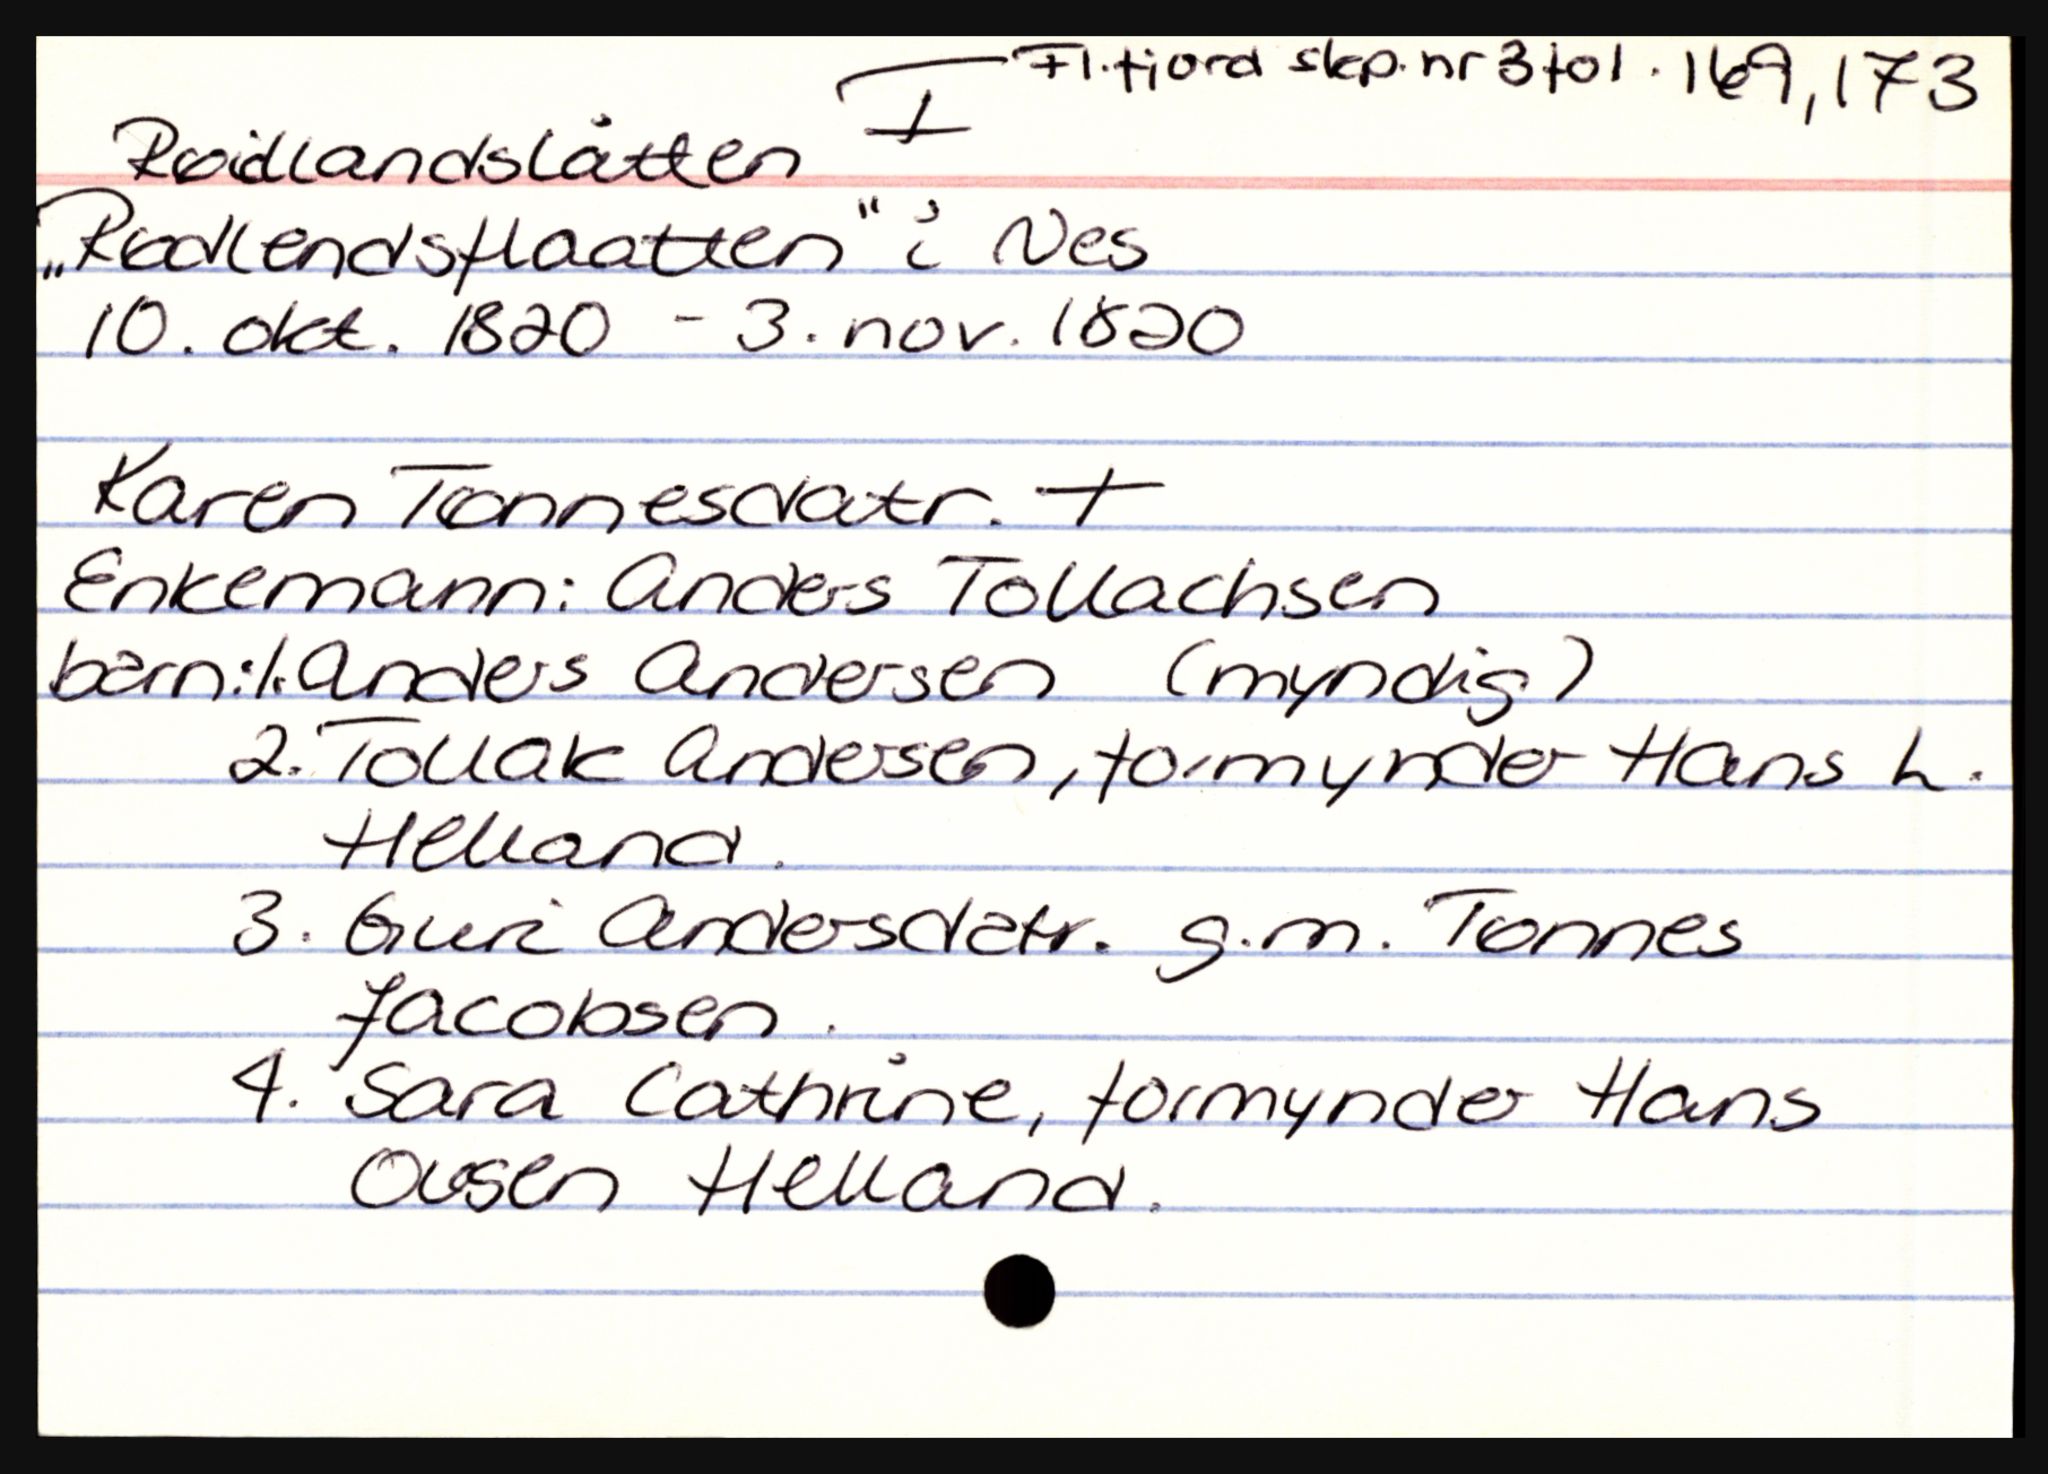 I Fl.fjord skp. nr 3 fol. 169, 173
Røidlandslåtten
„Rødlendsflaatten" i Nes
10. okt. 1820 - 3. nov. 1820
Karen Tønnesdatr. +
Enkemann: Anders Tollachsen
barn: 1. Anders Andersen (myndig)
2. Tollak Andersen, formynder Hans L.
Helland.
3. Guri Andersdatr. g.m. Tønnes
Jacobsen.
4. Sara Cathrine, formynder Hans
Olsen Helland.